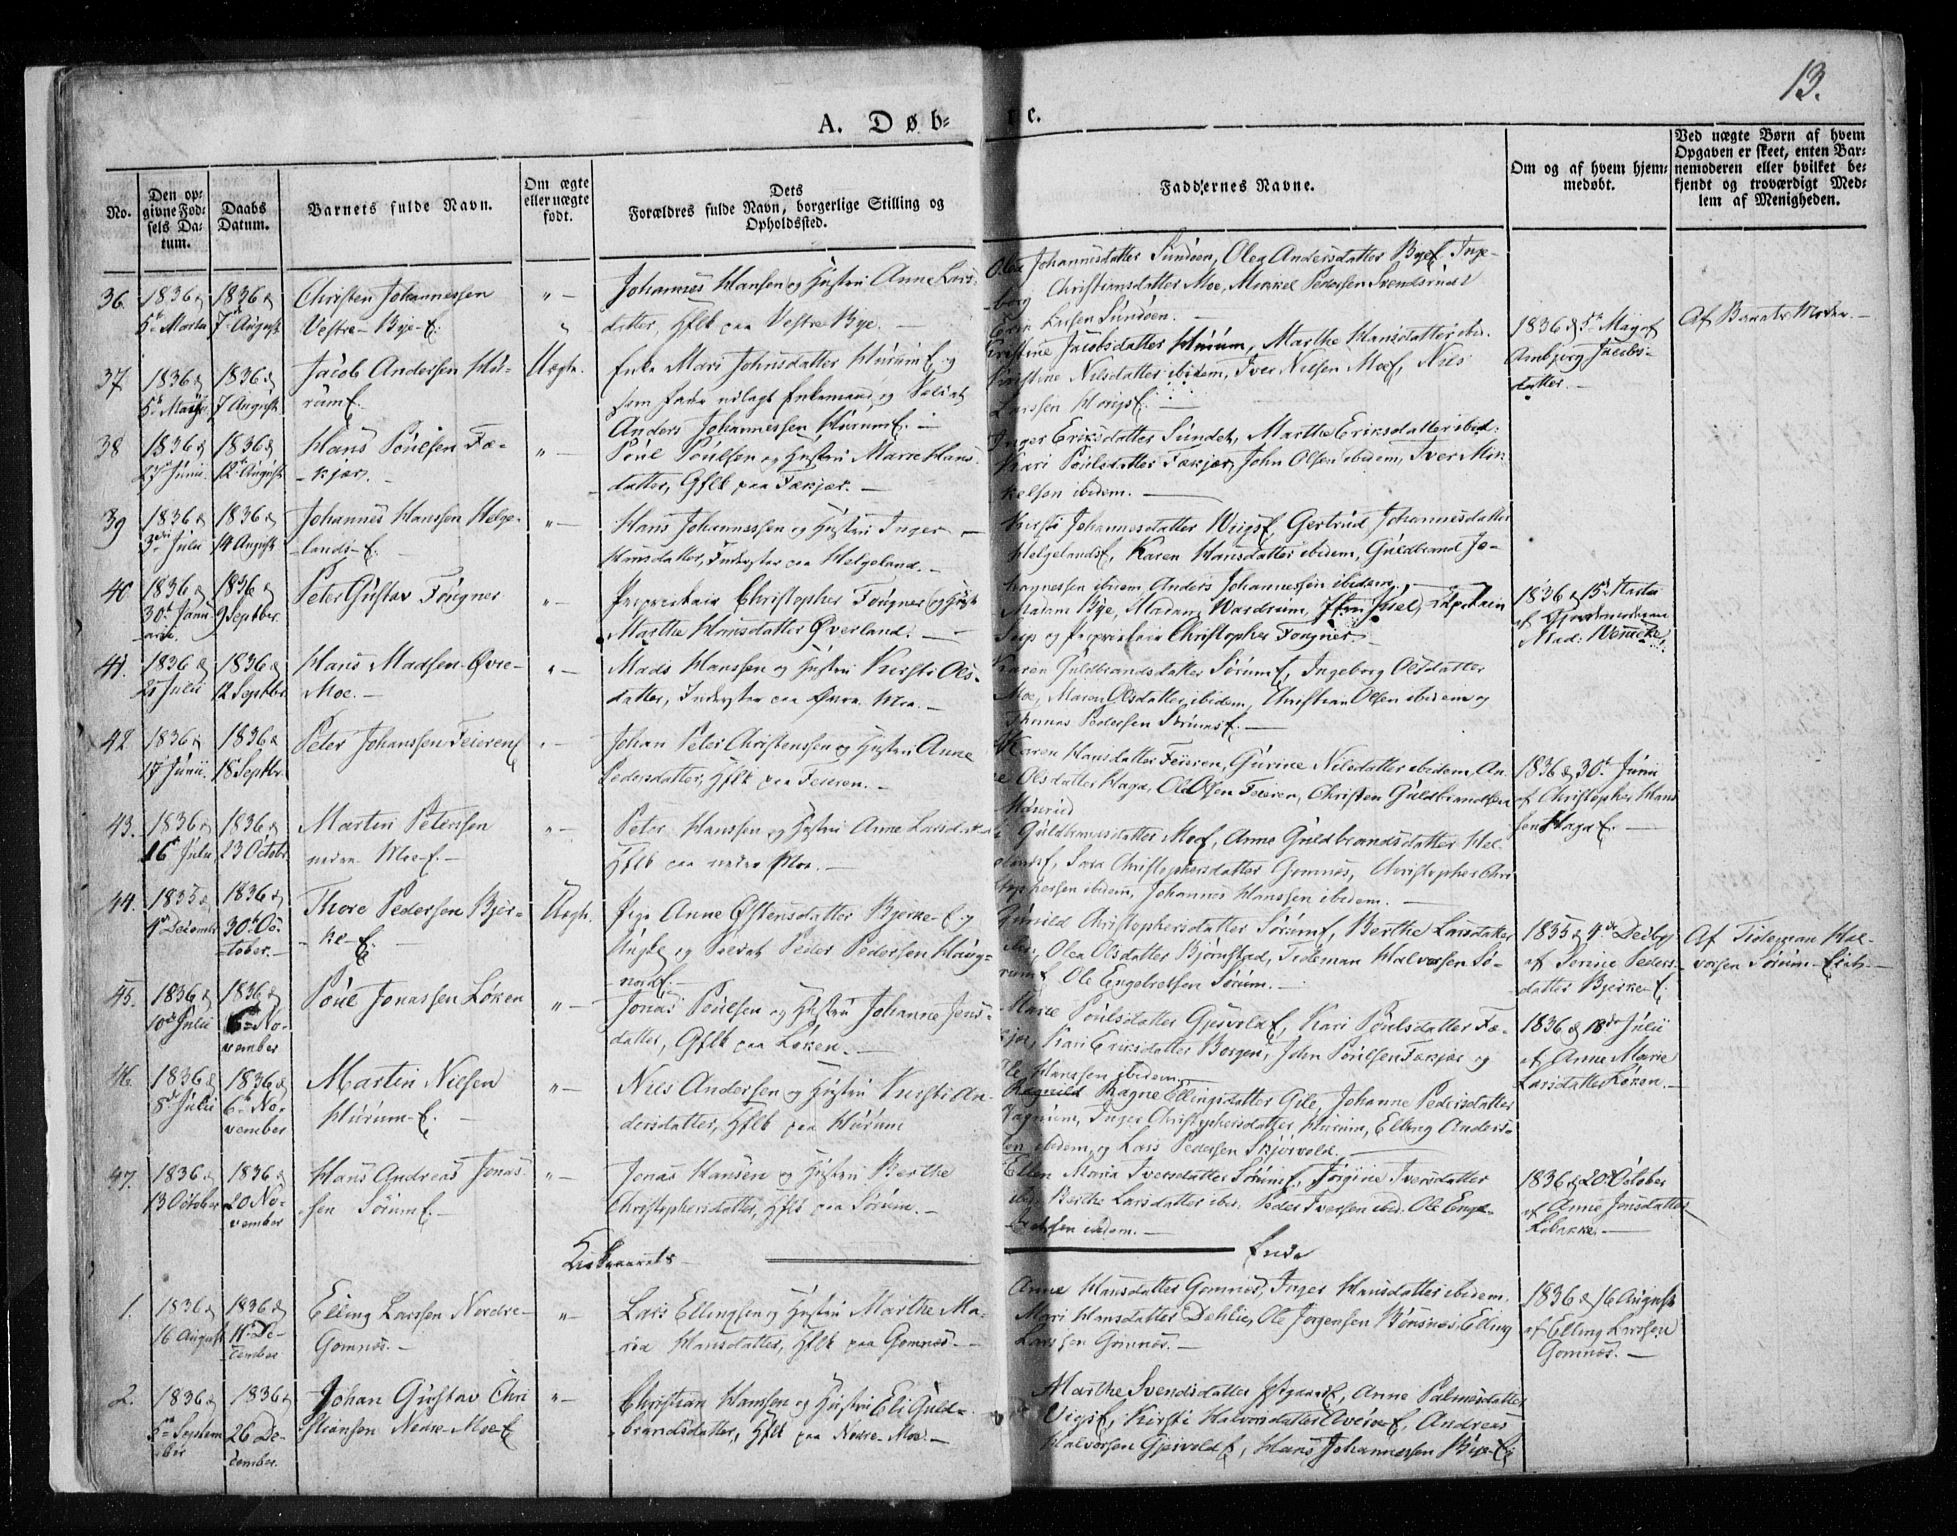 13.
A. Døb= te.
No.
Den opgivne Fødsels Datum.
Daabs Datum.
Barnets fulde Navn.
Om ægte eller uægte født.
Dets Forældres fulde Navn, borgerlige Stilling og Opholdssted.
Faddernes Navne.
Om og af hvem hjemmedøbt.
Ved uægte Børn af hvem Opgaven er skeet, enten Barnemoderen eller hvilket bekjendt og troværdigt Medlem af Menigheden.
36.
1836 d.
5te Martii
1836 d.
7de August
Christen Johannessen
Vestre-Bye-E.
Johannes Hansen og Hustru Anne Lars-
datter, Gflk paa Vestre Bye. —
Olea Johannesdatter Sundøen, Olea Andersdatter ByeE, Inge-
borg Christiansdatter Moe, Mikkel Pedersen Svendsrud
Sundøen. —
37
1836 d.
5te
1836 d.
7 August
Jacob Andersen Hu-
rumE.
Uægte.
Enke Mari Johnsdatter HurumE. og
som Fader udlagt Enkemand og
Anders Johannessen HurumE. —
Kirstine Jacobsdatter Hurum, Marthe Hansdatter ibid.
Kirstine Nilsdatter ibidem, Iver Nilsen MoeE, Niels
Larssen
1836 d. 5te
Ambjørg Jacobs-
datter. —
Af Barnets Moder. —
38
1836 d.
27 Junii
1836 d.
12te August
Hans Poulsen Fæ-
-kjær.
Poul Poulsen og Hustru Marie Hans-
datter, Gflk paa Fækjær. —
Inger Eriksdatter Sundet, Marthe Eriksdatter ibid.
Kari Poulsdatter Fækjær, John Olsen ibidem, Iver Mik-
kelsen ibidem. —
39
1836 d.
3die Julii
1836 d.
14 August
Johannes Hanssen Helge-
-lands-E.
Hans Johannessen og Hustru Inger
Hansdatter, Inderster paa Helgeland. —
Kirsti Johannesdatter VigsE, Gertrud Johannesdatter
HelgelandsE, Karen Hansdatter ibidem, Guldbrand Jo-
hannessen ibidem, Anders Johannessen ibidem. —
40
1836 d.
30te Janu-
arii.
1836 d.
9 Septbr.
Peter Gustav Fougner
Proprietair Christopher Fougner og Hustru
Marthe Hansdatter Øverland. —
Madam Bye, Madam Wardrum, Capitain
og Proprietair Christopher Fougner
1836 d. 15de Martii
af Gjordemoderen
Mad:
41.
1836 d.
2 Julii
1836 d.
12 Septbr.
Hans Madsen Øvre-
Moe. —
Mads Hanssen og Hustru Kirsti Ols-
datter, Inderster paa Øvre Moe. —
Karen Guldbrandsdatter SørumE, Ingeborg Olsdatter
Moe, Maren Olsdatter ibidem, Christian Olsen ibidem og
Thomas Pedersen SørumsE. —
42
1836 d.
17 Junii.
1836 d.
18 Septbr.
Peter Johanssen FeierenE
Johan Peter Christenssen og Hustru Anne
Pedersdatter, Hflk paa Feieren. —
Karen Hansdatter Feieren, Gurine Nilsdatter ibidem, An-
ne Olsdatter Haga, Ole Olsen Feieren, Christen Guldbrandsen
1836 d. 30te Junii
af Christopher Hans-
sen HagaE. —
43.
1836 d.
16 Julii
1836 d.
23 Octobr.
Martin Petersen
nedre MoeE. —
Peter Hanssen og Hustru Anne Larsdatter
Hflk paa nedre Moe. —
Guldbrandsdatter MoeE, Anne Guldbrandsdatter Hel-
gelandsE, Sara Christophersdatter Gomnes, Christopher Chri-
stophersen ibidem, Johannes Hanssen ibidem. —
44.
1835 d.
1 Decembr.
1836 d.
30te Oc-
tober. —
Thore Pedersen Bjer-
-ke-E.
Uægte.
Pige Anne Østensdatter Bjerke-E. og
Peder Pedersen Haug-
Gunild Christophersdatter SørumE, Berthe Larsdatter
ibid., Olea Olsdatter Bjørnstad, Tideman Halvorsen Sø-
rumE, Ole Engebretsen Sørum. —
1835 d. 4de Decbr
af Serine Peders-
datter Bjerke-E.
Af Tideman Hal-
vorsen Sørum-Eiet. —
45.
1836 d.
10de Julii
1836 d.
6te No-
vember
Poul Jonassen Løken
Jonas Poulsen og Hustru Johanne Jens-
datter, Gflk paa Løken. —
Marie Poulsdatter GjesvoldE, Kari Poulsdatter Fæ-
kjær, Kari Eriksdatter Borgen, John Poulsen Fækjær og
Ole Hanssen ibidem.
1836 d. 18de Julii
af Anne Marie
Larsdatter Løken. —
46.
1836 d.
8de Julii
1836 d.
6te No-
vember
Martin Nilsen
Hurum-E.
Niels Andersen og Hustru Kirsti An-
dersdatter, Hflk paa Hurum
Ragnild Ragne Ellingsdatter Gile, Johanne Pedersdatter
Inger Christophersdatter Hurum, Elling Anders-
sen ibidem og Lars Pedersen Skjørvold. —
47.
1836 d.
13 October
1836 d.
20 No-
vember
Hans Andreas Jonas-
sen SørumE.
Jonas Hansen og Hustru Berthe
Christophersdatter, Hflk paa Sørum. —
Ellen Maria Iversdatter SørumE, Jørgine Iversdatter
ibid. Berthe Larsdatter ibid. Peder Iversen ibid. Ole Enge-
bretsen ibidem. —
1836 d. 20 October
af Anne Jonsdatter
Kirkeaarets —
Ende
1.
1836 d.
16 August
1836 d.
11te De-
cember
Elling Larssen Nordre-
Gomnes. —
Lars Ellingsen og Hustru Marthe Ma-
ria Hansdatter, Hflk paa Gomnes. —
Anne Hansdatter Gomnes, Inger Hansdatter ibidem.
Mari Hansdatter Dehlie, Ole Jørgensen Bønsnes, Elling
Larssen Gomnes. —
1836 d. 16 August
af Elling Larssen
Gomnes. —
2.
1836 d.
5te Septem-
ber
1836 d.
26 De-
cember.
Johan Gustav Chri-
stiansen Nedre-MoeE
Christian Hanssen og Hustru Eli Guld-
brandsdatter, Hflk paa Nedre-Moe. —
Marthe Svendsdatter, Anne Palmesdatter
VigsE, Kirsti Halvorsdatter, Andreas
Halvorsen GjesvoldE, Hans Johannessen Bye-E.